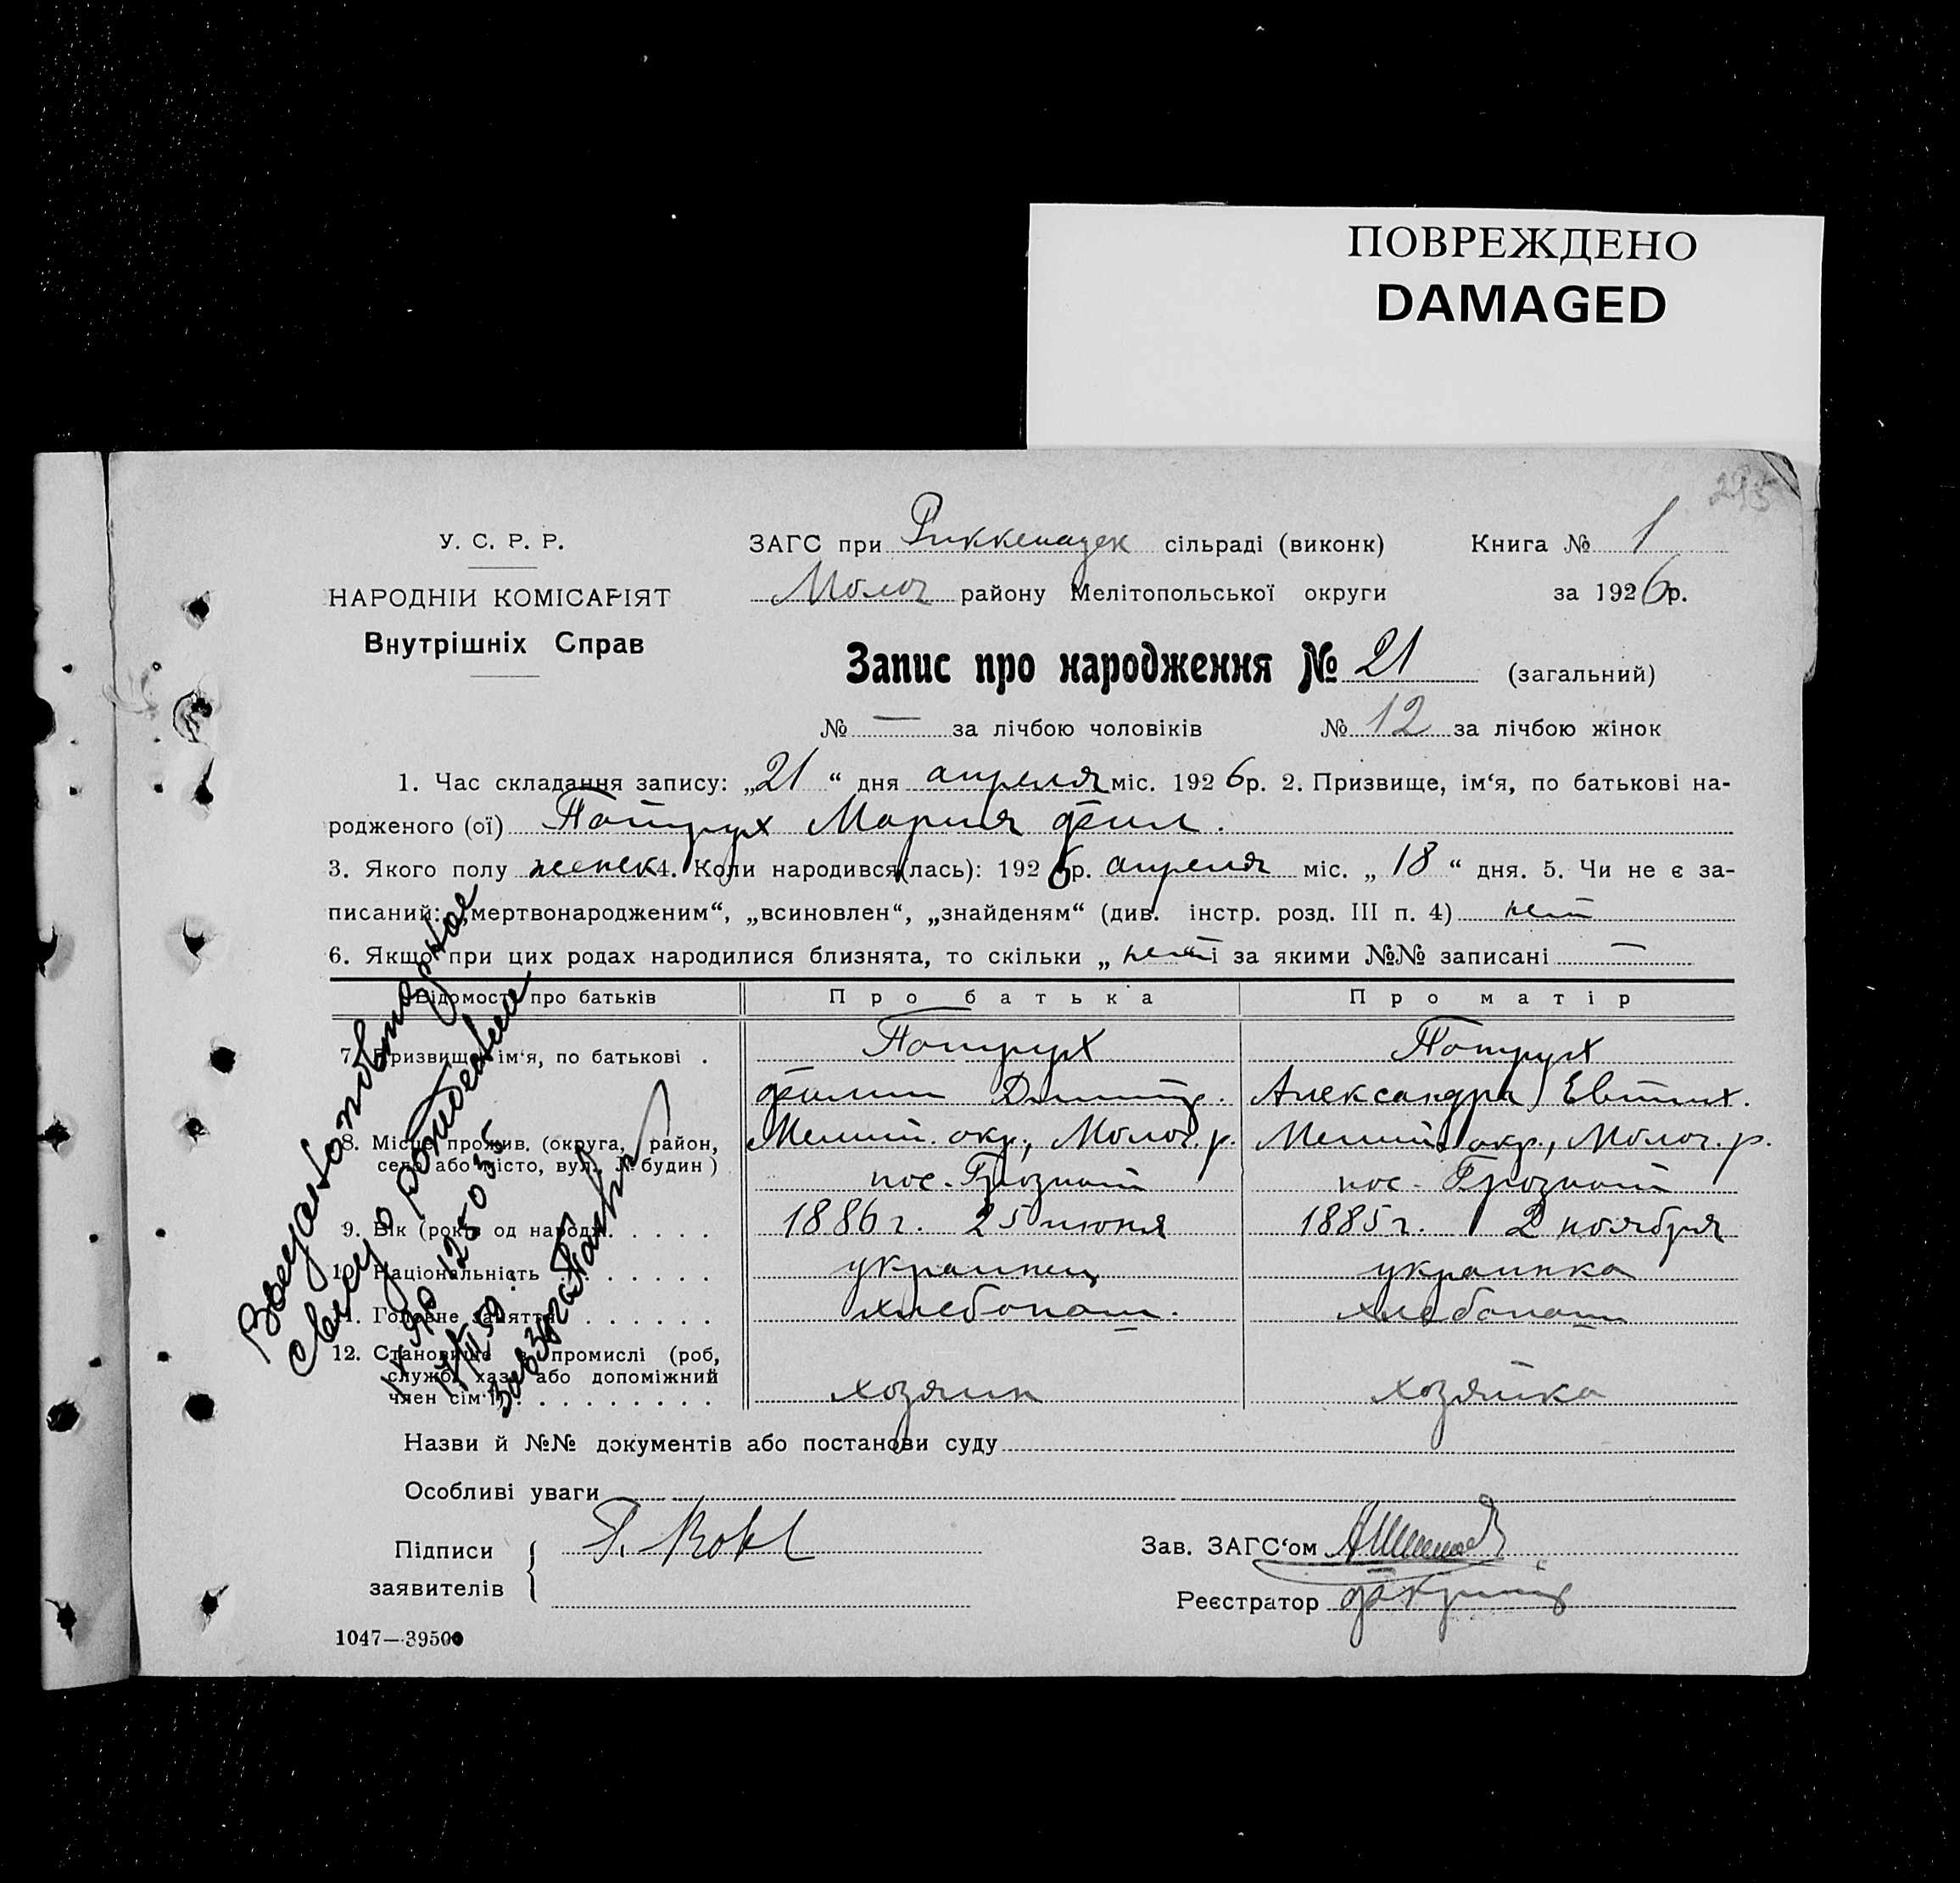 ПОВРЕЖДЕНО
DAMAGED
295
У. С. Р. Р.
НАРОДНІЙ КОМІСАРІЯТ
Внутрішніх Справ
ЗАГС при Риккенадек сільраді (виконк) Книга № 1
Молоч району Мелітопольської округи за 1926 р.
Запис про народження № 21 (загальний)
№ — за лічбою чоловіків № 12 за лічбою жінок
1. Час складання запису: „21“ дня апреля міс. 1926 р. 2. Призвище, ім‘я, по батькові на-
родженого (ої) Потрух Мария Фил.
3. Якого полу женск 4. Коли народився(лась): 1926 р. апреля міс. „18“ дня. 5. Чи не є за-
писаний: „мертвонародженим“, „всиновлен“, „знайденям“ (див. інстр. розд. III п. 4) нет
6. Якщо при цих родах народилися близнята, то скільки „нет“ і за якими №№ записані —
Відомості про батьків Про батька Про матір
7. Призвище, ім‘я, по батькові . Потрух Потрух
Филип Дмитр. Александра Евтих.
8. Місце прожив. (округа, район, Мелит. окр., Молоч. р. Мелит. окр., Молоч. р.
село або місто, вул., № будин) пос. Грозной пос. Грозной
9. Вік (років од народж. 1886 г. 25 июня 1885 г. 2 ноября
10. Національність украинец украинка
11. Головне заняття хлебопаш. хлебопаш
12. Становище в промислі (роб,
службр. хаз. або допоміжний
член сім‘ї) хозяин хозяйка
Назви й №№ документів або постанови суду
Особливі уваги
Підписи
заявителів
Зав. ЗАГС‘ом
Реєстратор
1047—39500
Выдано повторное
свид о рождении
125035
Зав Загс